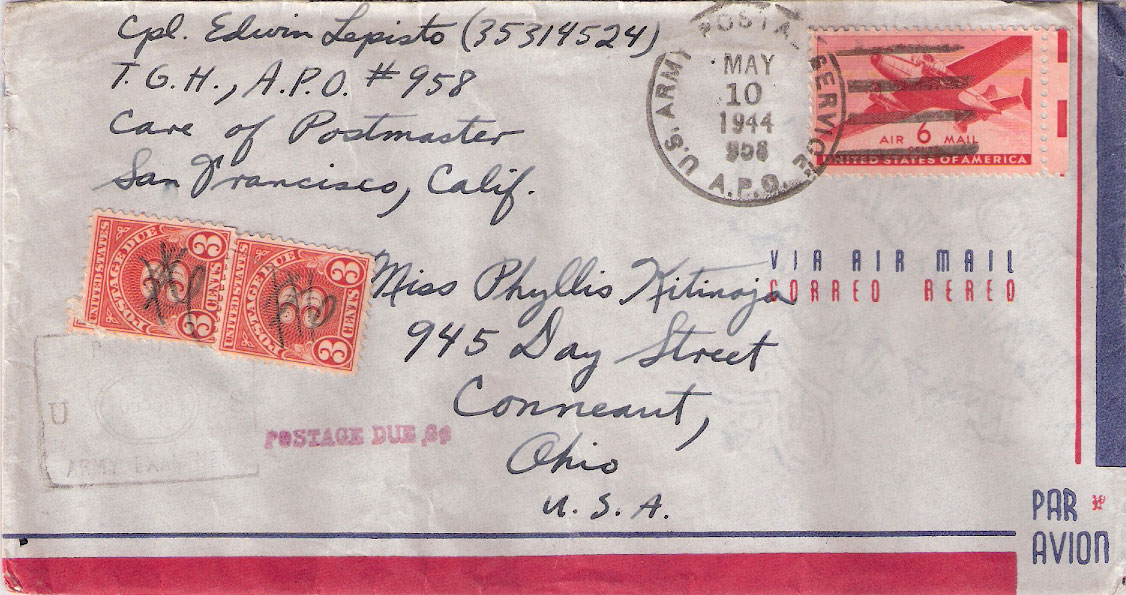 Cpl. Edwin Lepisto (35314524)
T.G.H., A.P.O. #958
Care of Postmaster
San Francisco, Calif.
U.S. ARMY POSTAL SERVICE
MAY
10
1944
958
A.P.O.
AIR 6 MAIL
CENTS
UNITED STATES OF AMERICA
VIA AIR MAIL
CORREO AEREO
UNITED STATES
POSTAGE DUE
3
CENTS
3
UNITED STATES
POSTAGE DUE
3
CENTS
3
Miss Phyllis Kitinoja
945 Day Street
Conneaut,
Ohio
U.S.A.
U S
ARMY EXAMINER
POSTAGE DUE
PAR
AVION